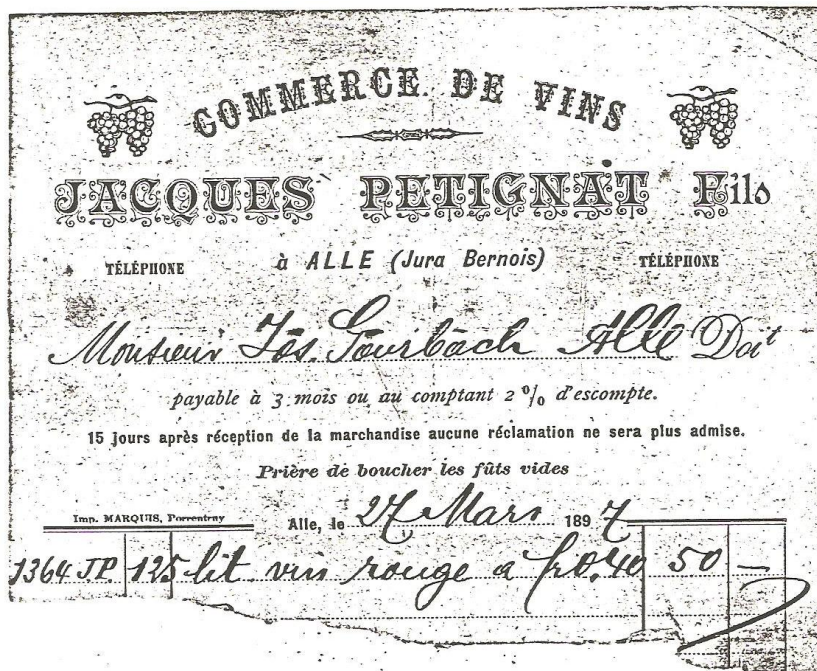 COMMERCE DE VINS
JACQUES PETIGNAT Fils
TÉLÉPHONE à ALLE (Jura Bernois) TÉLÉPHONE
Monsieur Jos. Gourbach Alle Doit
payable à 3 mois ou au comptant 2 % d'escompte.
15 jours après réception de la marchandise aucune réclamation ne sera plus admise.
Prière de boucher les fûts vides
Imp. MARQUIS, Porrentruy
Alle, le 27 Mars 1897
1364 JP 125 lit vin rouge a fr 0.40 50 —